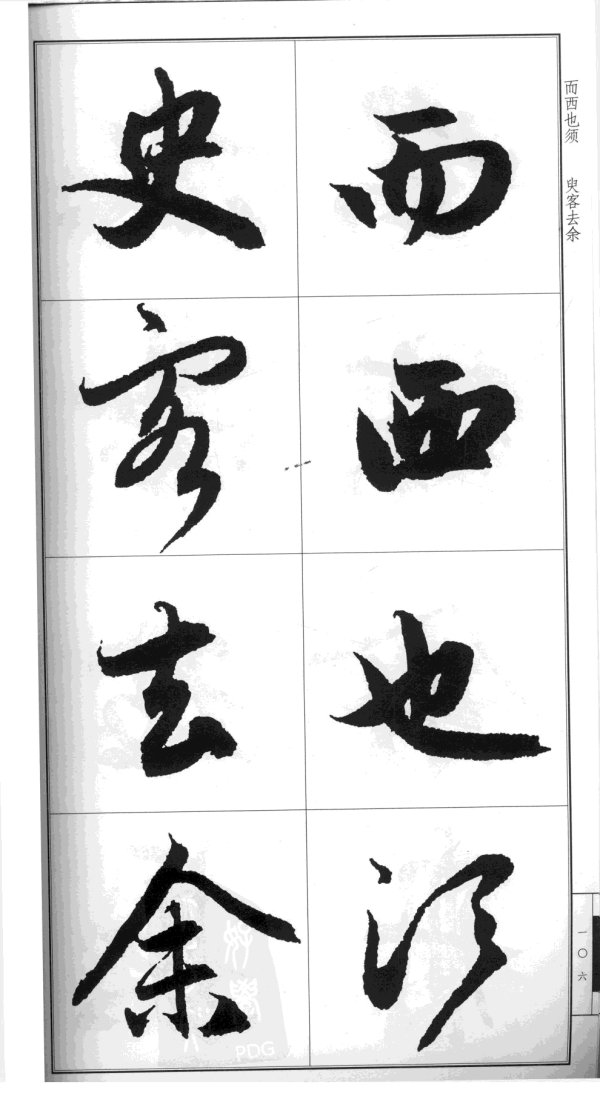 而西也须 臾客去余
而西也须
臾客去余
一〇六
PDG